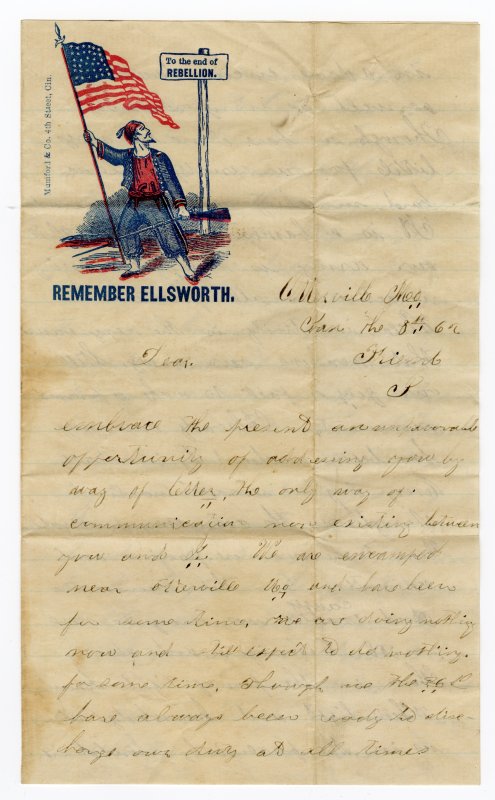 Mumford & Co. 4th Street, Cin.
To the end of
REBELLION.
REMEMBER ELLSWORTH.
Otterville Mo
Jan the 8th 62
Dear
Friend
I
embrace the present an unfavorable
oppertunity of addressing you by
way of letter, the only way of
communication now existing between
you and I. We are encamped
near otterville Mo and have been
for some time. we are doing nothing
now and still expect to do nothing
for some time. though we the 26th
have always been ready to disc-
harge our duty at all times